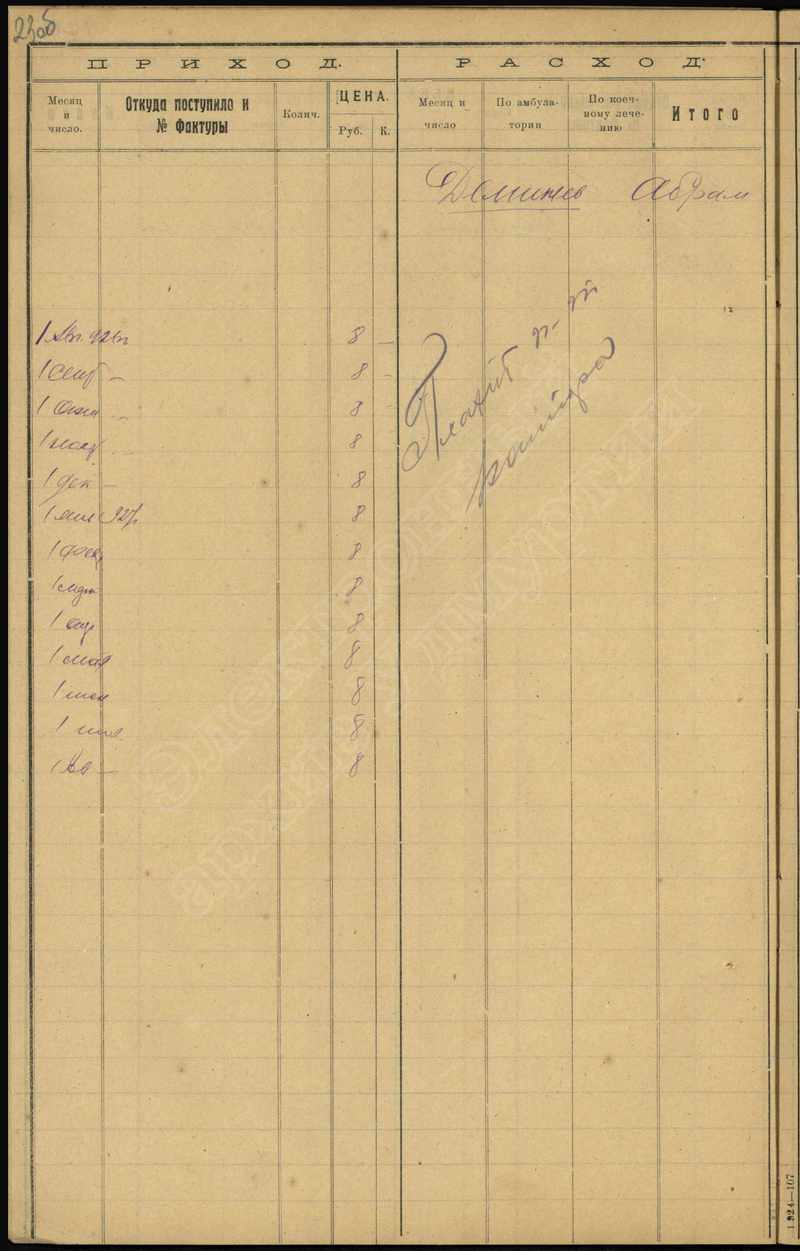 23об
ПРИХОД. РАСХОД.
Месяц и число. Откуда поступило и № Фактуры Колич. ЦЕНА. Руб. К. Месяц и число По амбулатории По коечному лечению Итого
Абрам
1 Авг. 926г 8 —
1 Сент — 8 —
1 Окт — 8 —
1 нояб — 8
1 Дек — 8
1 янв 927г 8
1 фев 8
1 март 8
1 апр 8
1 мая 8
1 июн 8
1 июл 8
1 Ав — 8
Платит
электронный
архив Удмуртии
1.924—107